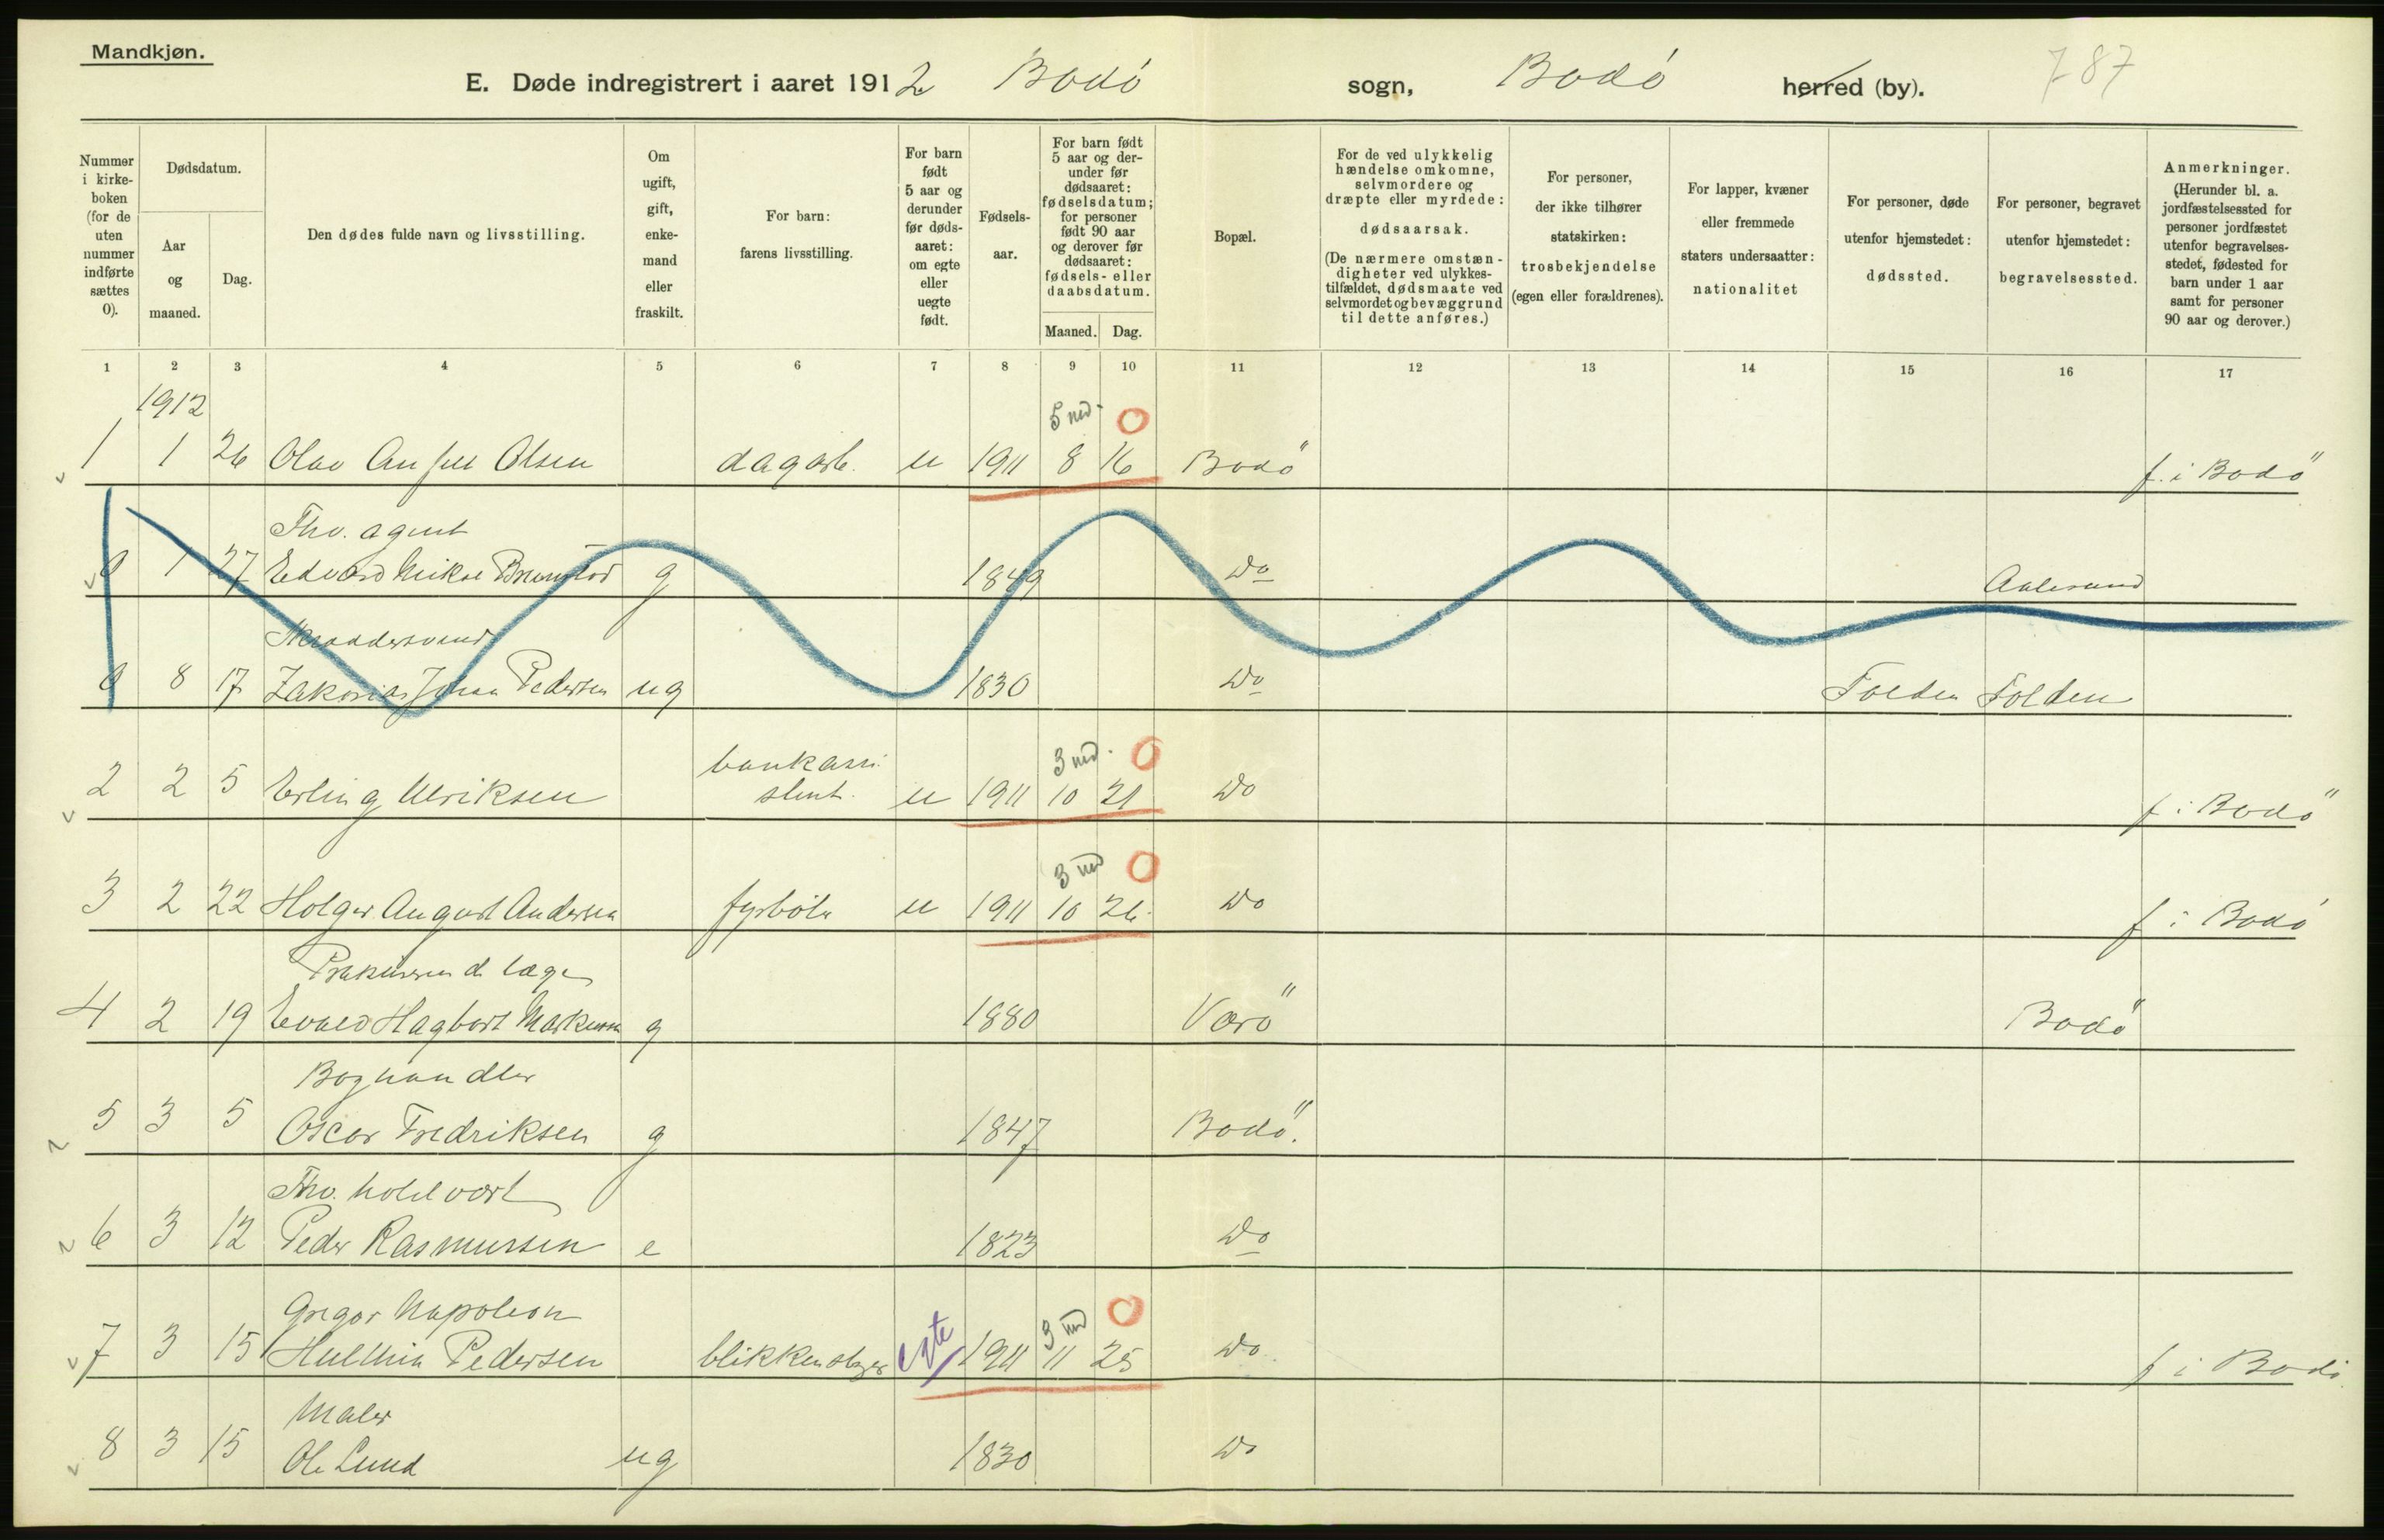 Mandkjøn.
E. Døde indregistrert i aaret 1912 Bodó sogn, Bodó herred (by). 787
Nummer i kirke-boken (for de uten nummer indførte sættes 0).
Dødsdatum.
Aar og maaned.
Dag.
Den dødes fulde navn og livsstilling.
Om ugift, gift, enke-mand eller fraskilt.
For barn: farens livsstilling.
For barn født 5 aar og derunder før døds-aaret: om egte eller uegte født.
Fødsels-aar.
For barn født 5 aar og der-under før dødsaaret: fødselsdatum; for personer født 90 aar og derover før dødsaaret: fødsels- eller daabsdatum.
Maaned. Dag.
Bopæl.
For de ved ulykkelig hændelse omkomne, selvmordere og dræpte eller myrdede: dødsaarsak. (De nærmere omstæn-digheter ved ulykkes-tilfældet, dødsmaate ved selvmordet og bevæggrund til dette anføres.)
For personer, der ikke tilhører statskirken: trosbekjendelse (egen eller forældrenes).
For lapper, kvæner eller fremmede staters undersaatter: nationalitet
For personer, døde utenfor hjemstedet: dødssted.
For personer, begravet utenfor hjemstedet: begravelsessted.
Anmerkninger. (Herunder bl. a. jordfæstelsessted for personer jordfæstet utenfor begravelses-stedet, fødested for barn under 1 aar samt for personer 90 aar og derover.)
1 2 3 4 5 6 7 8 9 10 11 12 13 14 15 16 17
1912
5 md. 0
1 1 26 Olav Olsen dagarb. u 1911 8 16 Bodö f. i Bodö
Fhv. agent
0 1 27 Edvard g 1849 Do Aalesund
0 8 17 Zakarias Johan Pedersen ug 1830 Do Folden Folden
bankassi- 3 md. 0
2 2 5 Erling Ulriksen stent. u 1911 10 21 Do f i Bodö
3 md 0
3 2 22 Holger August Andersen fyrböter u 1911 10 26 Do f i Bodó
Praktiserende læge
4 2 19 Evald Hagbart Markussen g 1880 Værö Bodö
Boghandler
5 3 5 Oscar Fredriksen g 1847 Bodö.
Fhv. hotelvært
6 3 12 Peder Rasmussen e 1823 Do
Gregor Napoleon 3 md 0
7 3 15 Pedersen blikkenslager egte 1911 11 25 Do f i Bodö
Maler
8 3 15 Ole Lund ug 1830 Do